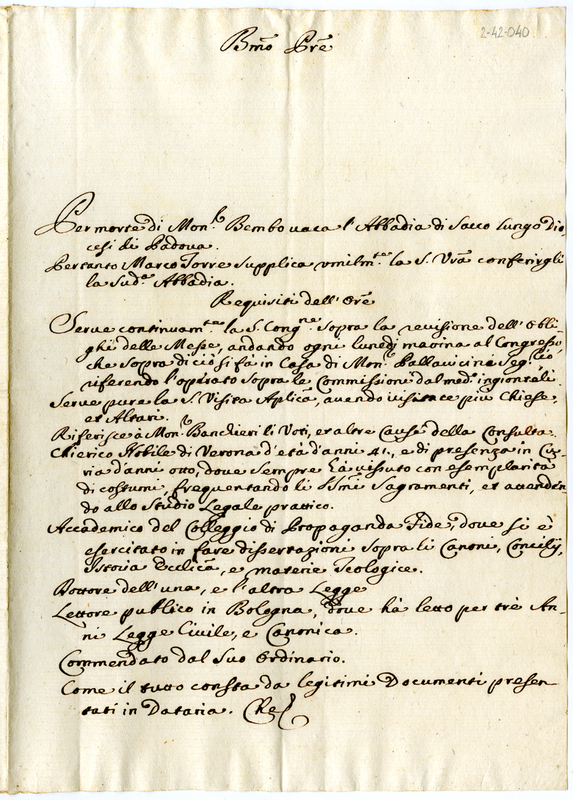 2-42-040
Bmõ Prẽ
Per morte di Mon.r Bembo vaca l'Abbadia di Sacco lungo Dio-
cesi di Padova.
Pertanto Marco Torre supplica umilm.te la S. Vrã conferirgli
la Sud.a Abbadia.
Requisiti dell'Orẽ
Serve continuam.te la S. Cong.ne sopra la revisione dell'Obli-
ghi delle Messe, andando ogni lunedj matina al Congresso,
che sopra di ciò si fà in Casa di Mon.r Pallavicini Seg.rio
riferendo l'oprato sopra le Commissione dal med.
Serve pure la S. Visita Aplicã, avendo visitate più Chiese,
et Altari.
Riferisce à Mon.r Banchieri li Voti, et altre Cause della Consulta.
Chierico Nobile di Verona d'età d'anni 41, e di presenza in Cu-
ria d'anni otto, dove sempre hà vissuto con esemplarità
di costumi, frequentando li SSmi Sagramenti, et attenden-
do allo Studio Legale prattico.
Accademico del Colleggio di Propaganda Fide, dove si è
esercitato in fare dissertazioni sopra li Canoni, Concilij,
Istoria Ecclicã, e materie Teologice.
Dottore dell'una, e l'altra Legge
Lettore publico in Bologna, dove hà letto per trè An-
ni Legge Civile, e Canonica.
Commendato dal Suo Ordinario.
Come il tutto consta da legitimi Documenti presen
tati in Dataria. Che